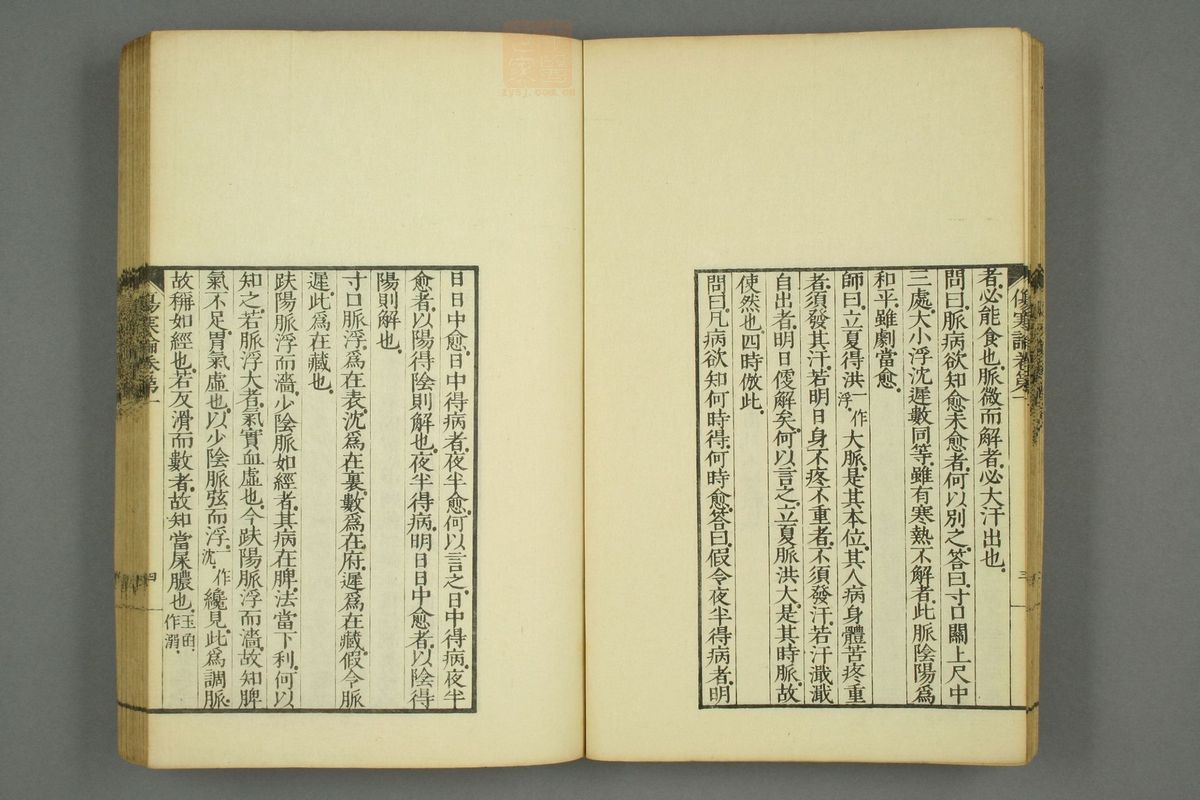 者。必能食也。脈微而解者。必大汗出也。
問曰。脈病欲知愈未愈者。何以別之。答曰。寸口關上尺中
三處。大小浮沈遲數同等。雖有寒熱不解者。此脈陰陽爲
和平。雖劇當愈。
師曰。立夏得洪一作浮。大脈。是其本位。其人病身體苦疼重
者。須發其汗。若明日身不疼不重者。不須發汗。若汗濈濈
自出者。明日便解矣。何以言之。立夏脈洪大。是其時脈。故
使然也。四時倣此。
問曰。凡病欲知何時得。何時愈。答曰。假令夜半得病者。明
日日中愈。日中得病者。夜半愈。何以言之。日中得病。夜半
愈者。以陽得陰則解也。夜半得病。明日日中愈者。以陰得
陽則解也。
寸口脈浮。爲在表。沈爲在裏。數爲在府。遲爲在藏。假令脈
遲。此爲在藏也。
趺陽脈浮而濇。少陰脈如經者。其病在脾。法當下利。何以
知之。若脈浮大者。氣實血虛也。今趺陽脈浮而濇。故知脾
氣不足。胃氣虛也。以少陰脈弦而浮。一作沈。纔見。此爲調脈。
故稱如經也。若反滑而數者。故知當屎膿也。玉函作溺。
傷寒論卷第一
三
傷寒論卷第一
四
zysj.com.cn